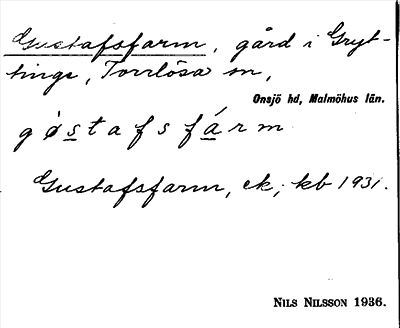 Gustafsfarm, gård i Gryt-
tinge, Torrlösa sn,
Onsjö hd, Malmöhus län.
gøstafsfárm
Gustafsfarm, ek, kb 1931.
NILS NILSSON 1936.